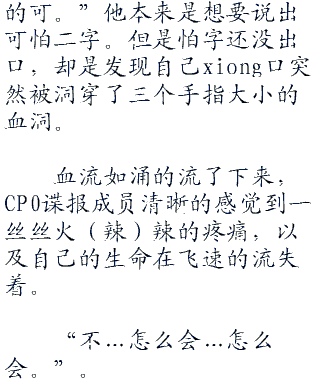 的可。”他本来是想要说出
可怕二字。但是怕字还没出
口，却是发现自己xiong口突
然被洞穿了三个手指大小的
血洞。
血流如涌的流了下来，
CP0谍报成员清晰的感觉到一
丝丝火（辣）辣的疼痛，以
及自己的生命在飞速的流失
着。
“不…怎么会…怎么
会。”。